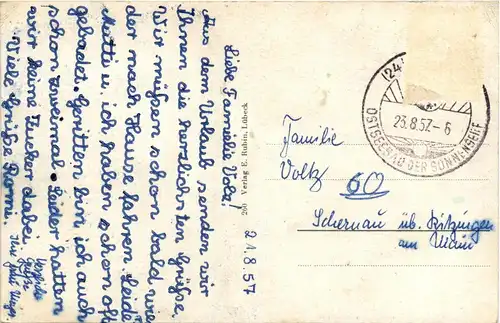 Liebe Familie Volz!
Aus dem Urlaub senden wir
Ihnen die herzlichsten Grüße.
Wir müßen schon bald wie
der nach Hause fahren. Leide
Mutti u. ich haben schon oft
gebadet. Geritten bin ich auch
schon zweimal. Leider hatten
wir keine Zucker dabei.
Viele Grüße Ronni.
260 Verlag E. Rubin, Lübeck
21.8.57
(24
23.8.57-6
OSTSEEBAD DER SONNENSEITE
Familie
Voltz
60
Schernau üb. Kitzingen
am Main